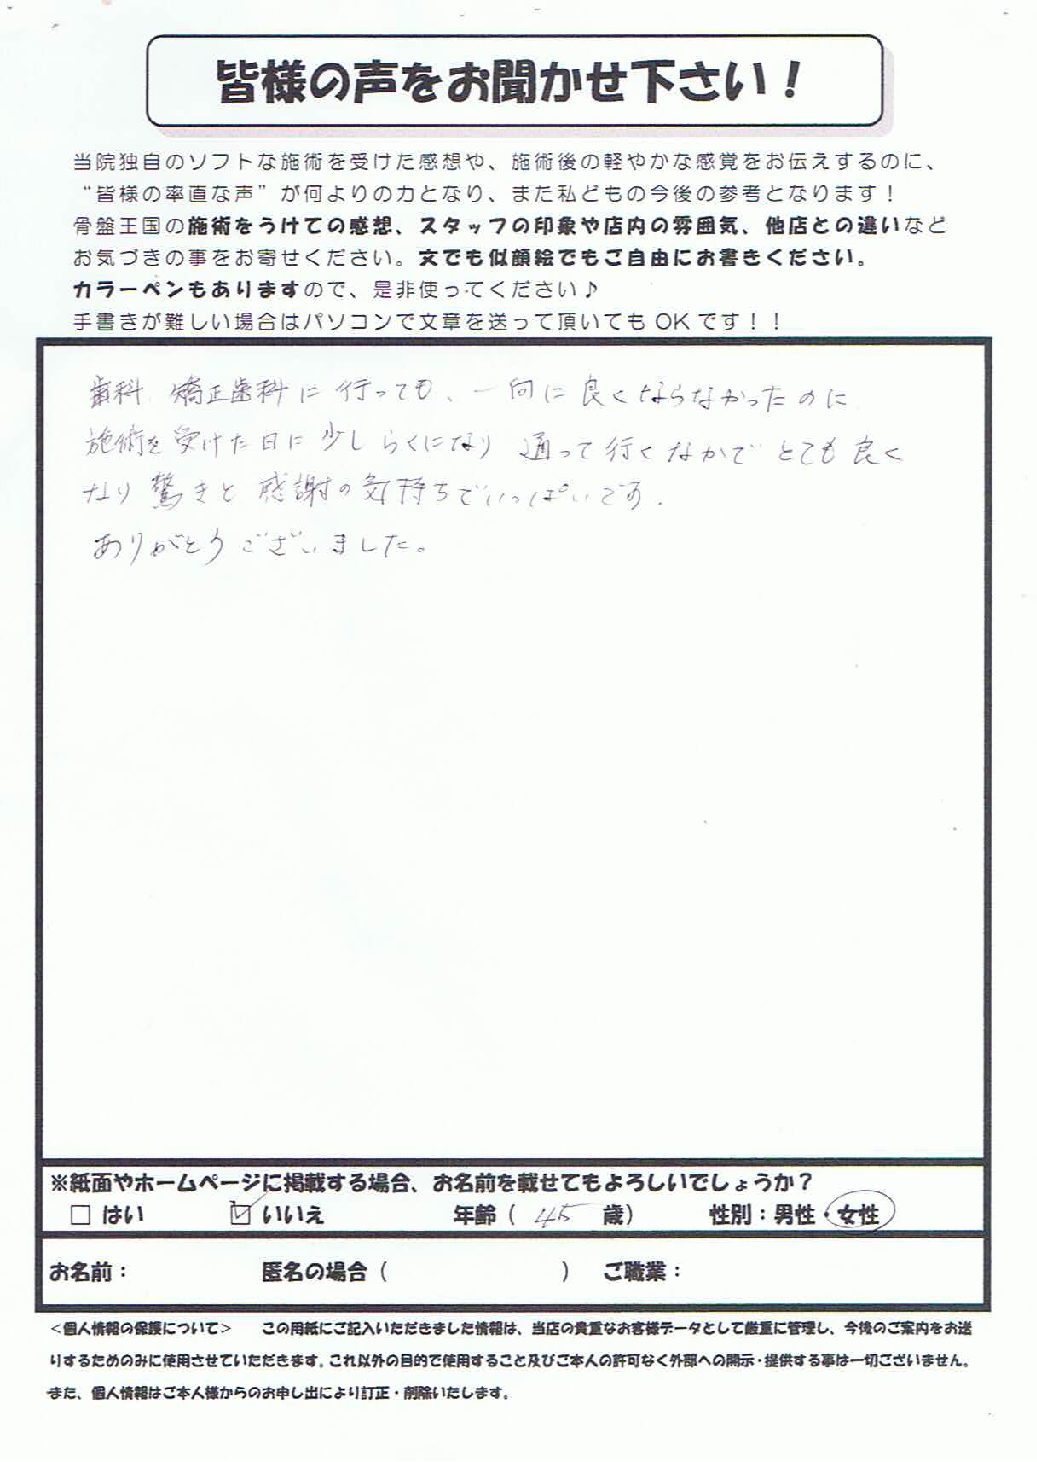 皆様の声をお聞かせ下さい！
当院独自のソフトな施術を受けた感想や、施術後の軽やかな感覚をお伝えするのに、
“皆様の率直な声”が何よりの力となり、また私どもの今後の参考となります！
骨盤王国の施術をうけての感想、スタッフの印象や店内の雰囲気、他店との違いなど
お気づきの事をお寄せください。文でも似顔絵でもご自由にお書きください。
カラーペンもありますので、是非使ってください♪
手書きが難しい場合はパソコンで文章を送って頂いてもOKです！！
歯科、矯正歯科に行っても、一向に良くならなかったのに
施術を受けた日に少しらくになり 通って行くなかで とても良く
なり驚きと感謝の気持ちでいっぱいです.
ありがとうございました。
※紙面やホームページに掲載する場合、お名前を載せてもよろしいでしょうか？
□はい ☑いいえ 年齢（ 45 歳） 性別：男性・女性
お名前： 匿名の場合（ ） ご職業：
＜個人情報の保護について＞ この用紙にご記入いただきました情報は、当店の貴重なお客様データとして厳重に管理し、今後のご案内をお送
りするためのみに使用させていただきます。これ以外の目的で使用すること及びご本人の許可なく外部への開示・提供する事は一切ございません。
また、個人情報はご本人様からのお申し出により訂正・削除いたします。